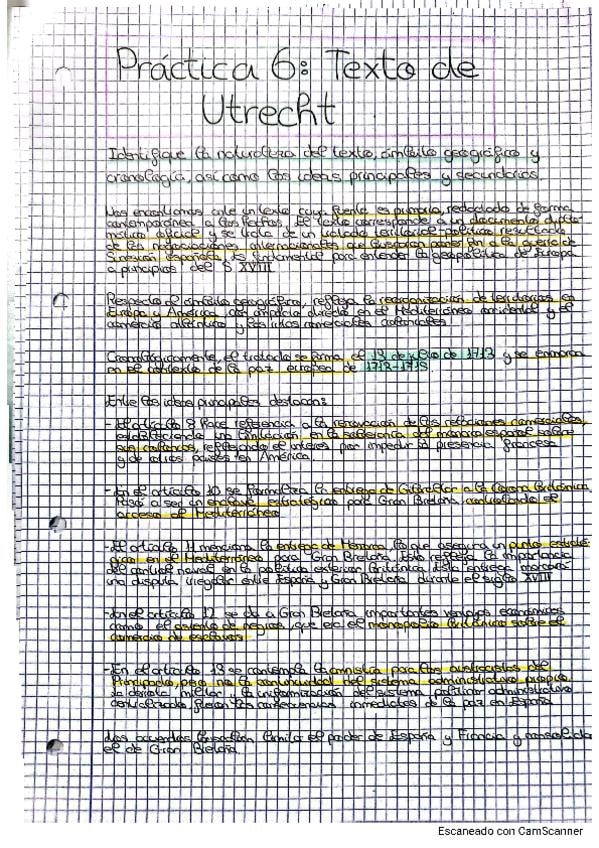 Práctica 6: Texto de
Utrecht
Identifique la naturaleza del texto, ámbito geográfico y
cronología, así como las ideas principales y secundarias.
Nos encontramos ante un texto cuya fuente es primaria, redactado de forma
contemporánea a los hechos. El texto corresponde a un documento diplo-
mático oficial y se trata de un tratado territorial-político resultado
de las negociaciones internacionales que buscaron poner fin a la guerra de
Sucesión española. Es fundamental para entender la geopolítica de Europa
a principios del S XVIII.
Respecto al ámbito geográfico, refleja la reorganización de territorios en
Europa y América, con impacto directo en el Mediterráneo occidental y el
comercio atlántico y las rutas comerciales coloniales
Cronológicamente, el tratado se firma el 13 de julio de 1713 y se enmarca
en el contexto de la paz europea de 1712-1715
Entre las ideas principales destacan:
- El artículo 8 hace referencia a la renovación de las relaciones comerciales,
estableciendo una limitación en la soberanía del monarca español sobre
sus colonias, reflejando el interés por impedir la presencia francesa
y de otros países en América.
- En el artículo 10 se formaliza la entrega de Gibraltar a la Corona Británica.
Pasó a ser un enclave estratégico para Gran Bretaña, controlando el
acceso al Mediterráneo.
- El artículo 11 menciona la entrega de Menorca, lo que asegura un punto estraté-
gico en el Mediterráneo para Gran Bretaña. Esto refleja la importancia
del control naval en la política exterior británica. Esta entrega marcará
una disputa irregular entre España y Gran Bretaña durante el siglo XVIII
- En el artículo 12 se da a Gran Bretaña importantes ventajas económicas
como el asiento de negros, que era el monopolio británico sobre el
comercio de esclavos.
- En el artículo 13 se contempla la amnistía para los austracistas del
Principado, pero no la continuidad del sistema administrativo propio.
La derrota militar y la uniformización del sistema político administrativo
centralizado fueron las consecuencias inmediatas de la paz en España
Los acuerdos buscaban limitar el poder de España y Francia y consolidar
el de Gran Bretaña.
Escaneado con CamScanner